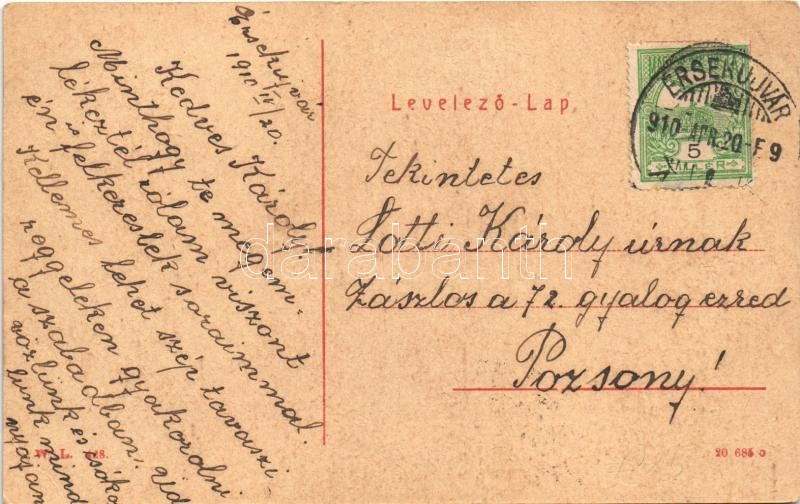 Érsekujvár
1910 IV/20.
Kedves Károly!
Minthogy te megem-
lékeztél rólam viszont
én is felkereslek soraimmal.
Kellemes lehet szép tavaszi
reggeleken gyakorolni
a szabadban.
mind
Levelező-Lap
ÉRSEKUJVÁR
910 APR. 20-F 9
5
Tekintetes
Lotti Károly úrnak
Zászlos a 72. gyalog ezred
Pozsony!
W. L. 428.
20 685
darabanth